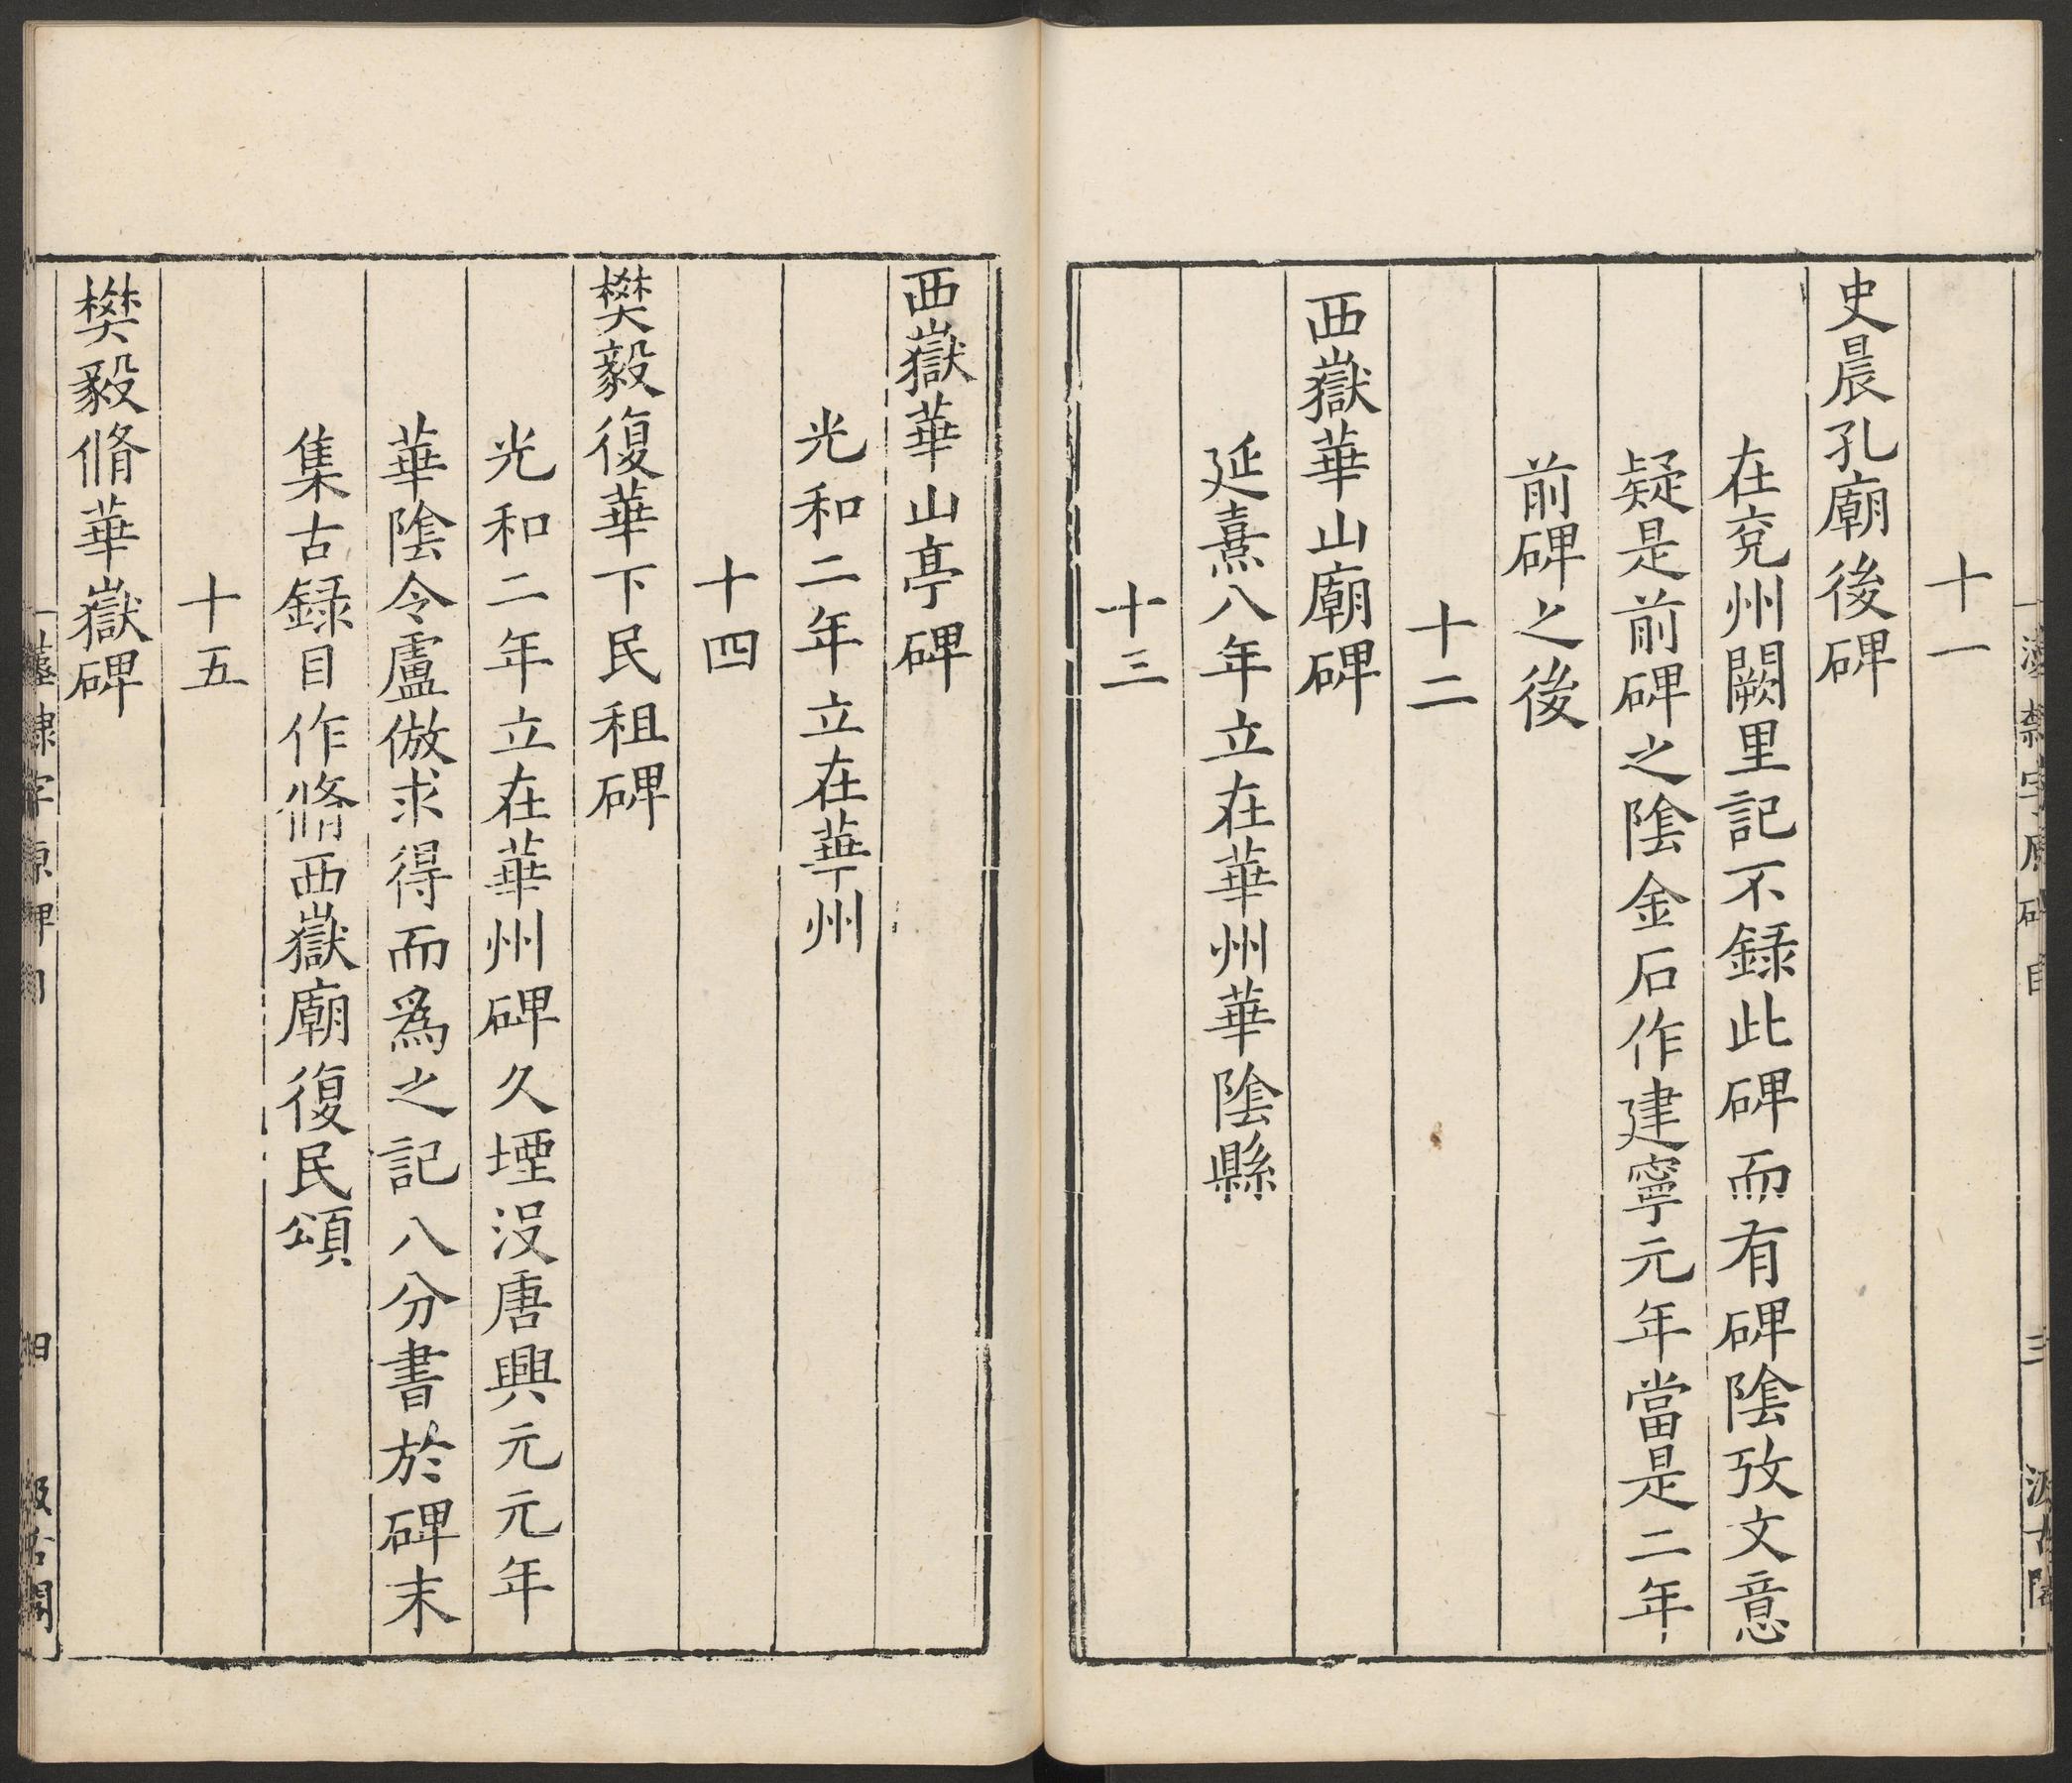 十一
史晨孔廟後碑
在兖州闕里記不録此碑而有碑陰攷文意
疑是前碑之陰金石作建寧元年當是二年
前碑之後
十二
西嶽華山廟碑
延熹八年立在華州華陰縣
十三
西嶽華山亭碑
光和二年立在華州
十四
樊毅復華下民租碑
光和二年立在華州碑久堙没唐興元元年
華陰令盧倣求得而爲之記八分書於碑末
集古録目作脩西嶽廟復民頌
十五
樊毅脩華嶽碑
隸字原碑目
四
汲古閣